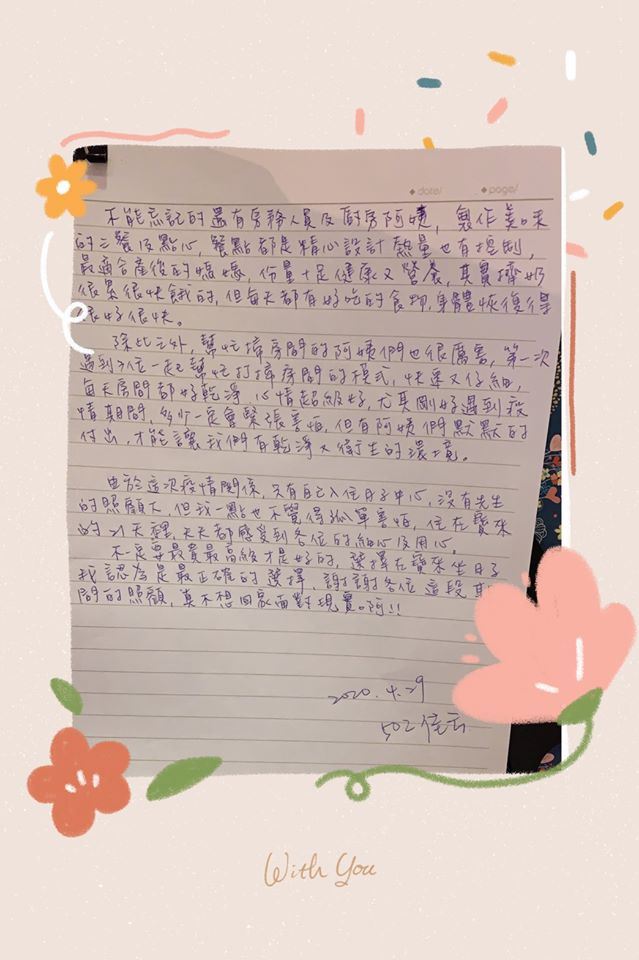 date/ page/
不能忘記的還有房務人員及廚房阿姨，製作美味
的三餐及點心，餐點都是精心設計熱量也有控制，
最適合產後的媽媽，份量十足健康又營養，其實擠奶
很累很快餓的，但每天都有好吃的食物，身體恢復得
很好很快。
除此之外，幫忙掃房間的阿姨們也很厲害，第一次
遇到3位一起幫忙打掃房間的模式，快速又仔細，
每天房間都好乾淨，心情超級好，尤其剛好遇到疫
情期間，多少一定會緊張害怕，但有阿姨們默默的
付出，才能讓我們有乾淨又衛生的環境。
由於這次疫情關係，只有自己入住月子中心，沒有先生
的照顧下，但我一點也不覺得孤單害怕，住在寶咪
的21天裡，天天都感受到各位的細心及用心。
不是要最貴最高級才是好的，選擇在寶咪坐月子
我認為是最正確的選擇，謝謝各位這段期
間的照顧，真不想回家面對現實啊!!
2020.4.29
502
With You